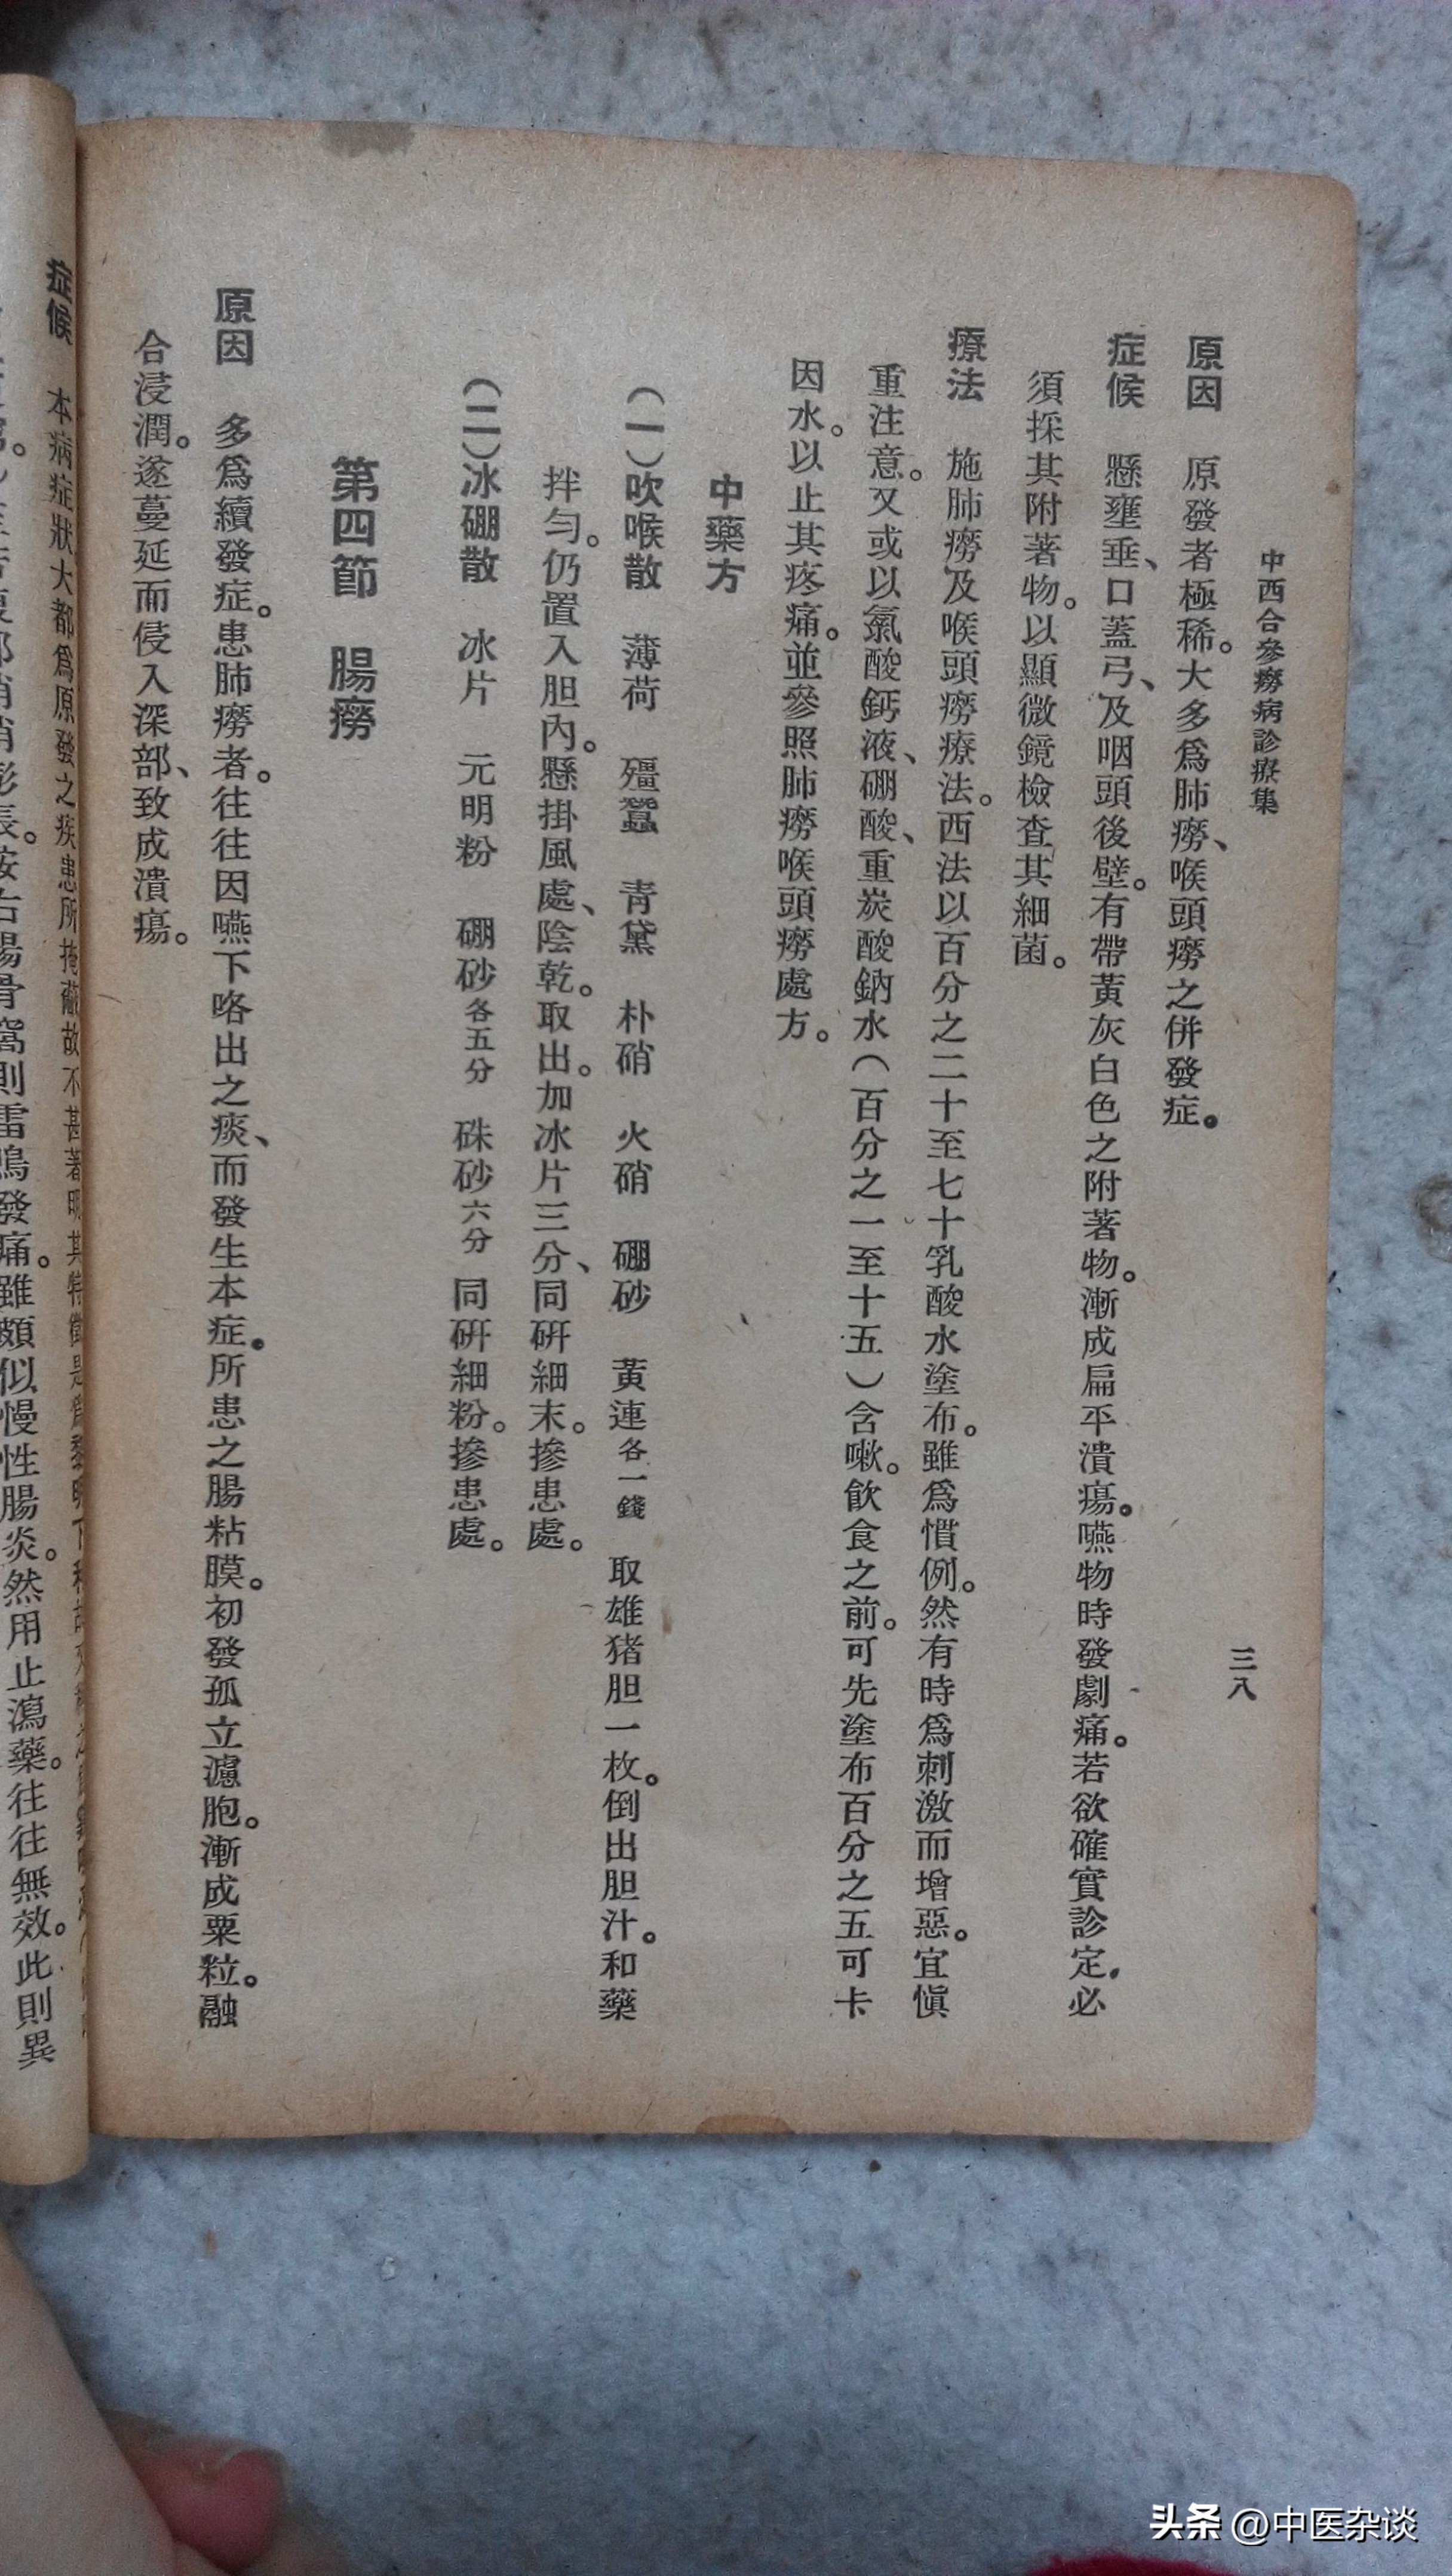 中西合參癆病診療集
三八
原因　原發者極稀。大多爲肺癆、喉頭癆之併發症。
症候　懸壅垂、口蓋弓、及咽頭後壁。有帶黃灰白色之附著物。漸成扁平潰瘍。嚥物時發劇痛。若欲確實診定。必
須採其附著物。以顯微鏡檢查其細菌。
療法　施肺癆及喉頭癆療法。西法以百分之二十至七十乳酸水塗布。雖爲慣例。然有時爲刺激而增惡。宜愼
重注意。又或以氯酸鈣液、硼酸、重炭酸鈉水（百分之一至十五）含嗽。飲食之前。可先塗布百分之五可卡
因水。以止其疼痛。並參照肺癆喉頭癆處方。
中藥方
（一）吹喉散　薄荷　殭蠶　靑黛　朴硝　火硝　硼砂　黃連各一錢　取雄猪胆一枚。倒出胆汁。和藥
拌匀。仍置入胆內。懸掛風處、陰乾。取出。加冰片三分、同硏細末。摻患處。
（二）冰硼散　冰片　元明粉　硼砂各五分　硃砂六分　同硏細粉。摻患處。
第四節　腸癆
原因　多爲續發症。患肺癆者。往往因嚥下咯出之痰、而發生本症。所患之腸粘膜。初發孤立濾胞。漸成粟粒。融
合浸潤。遂蔓延而侵入深部、致成潰瘍。
症候　本病症狀大都爲原發之疾患所掩蔽故不甚著明其特徵是爲黎明下
脹。按右腸骨窩則雷鳴發痛。雖頗似慢性腸炎。然用止瀉藥。往往無效。此則異
头条 @中医杂谈